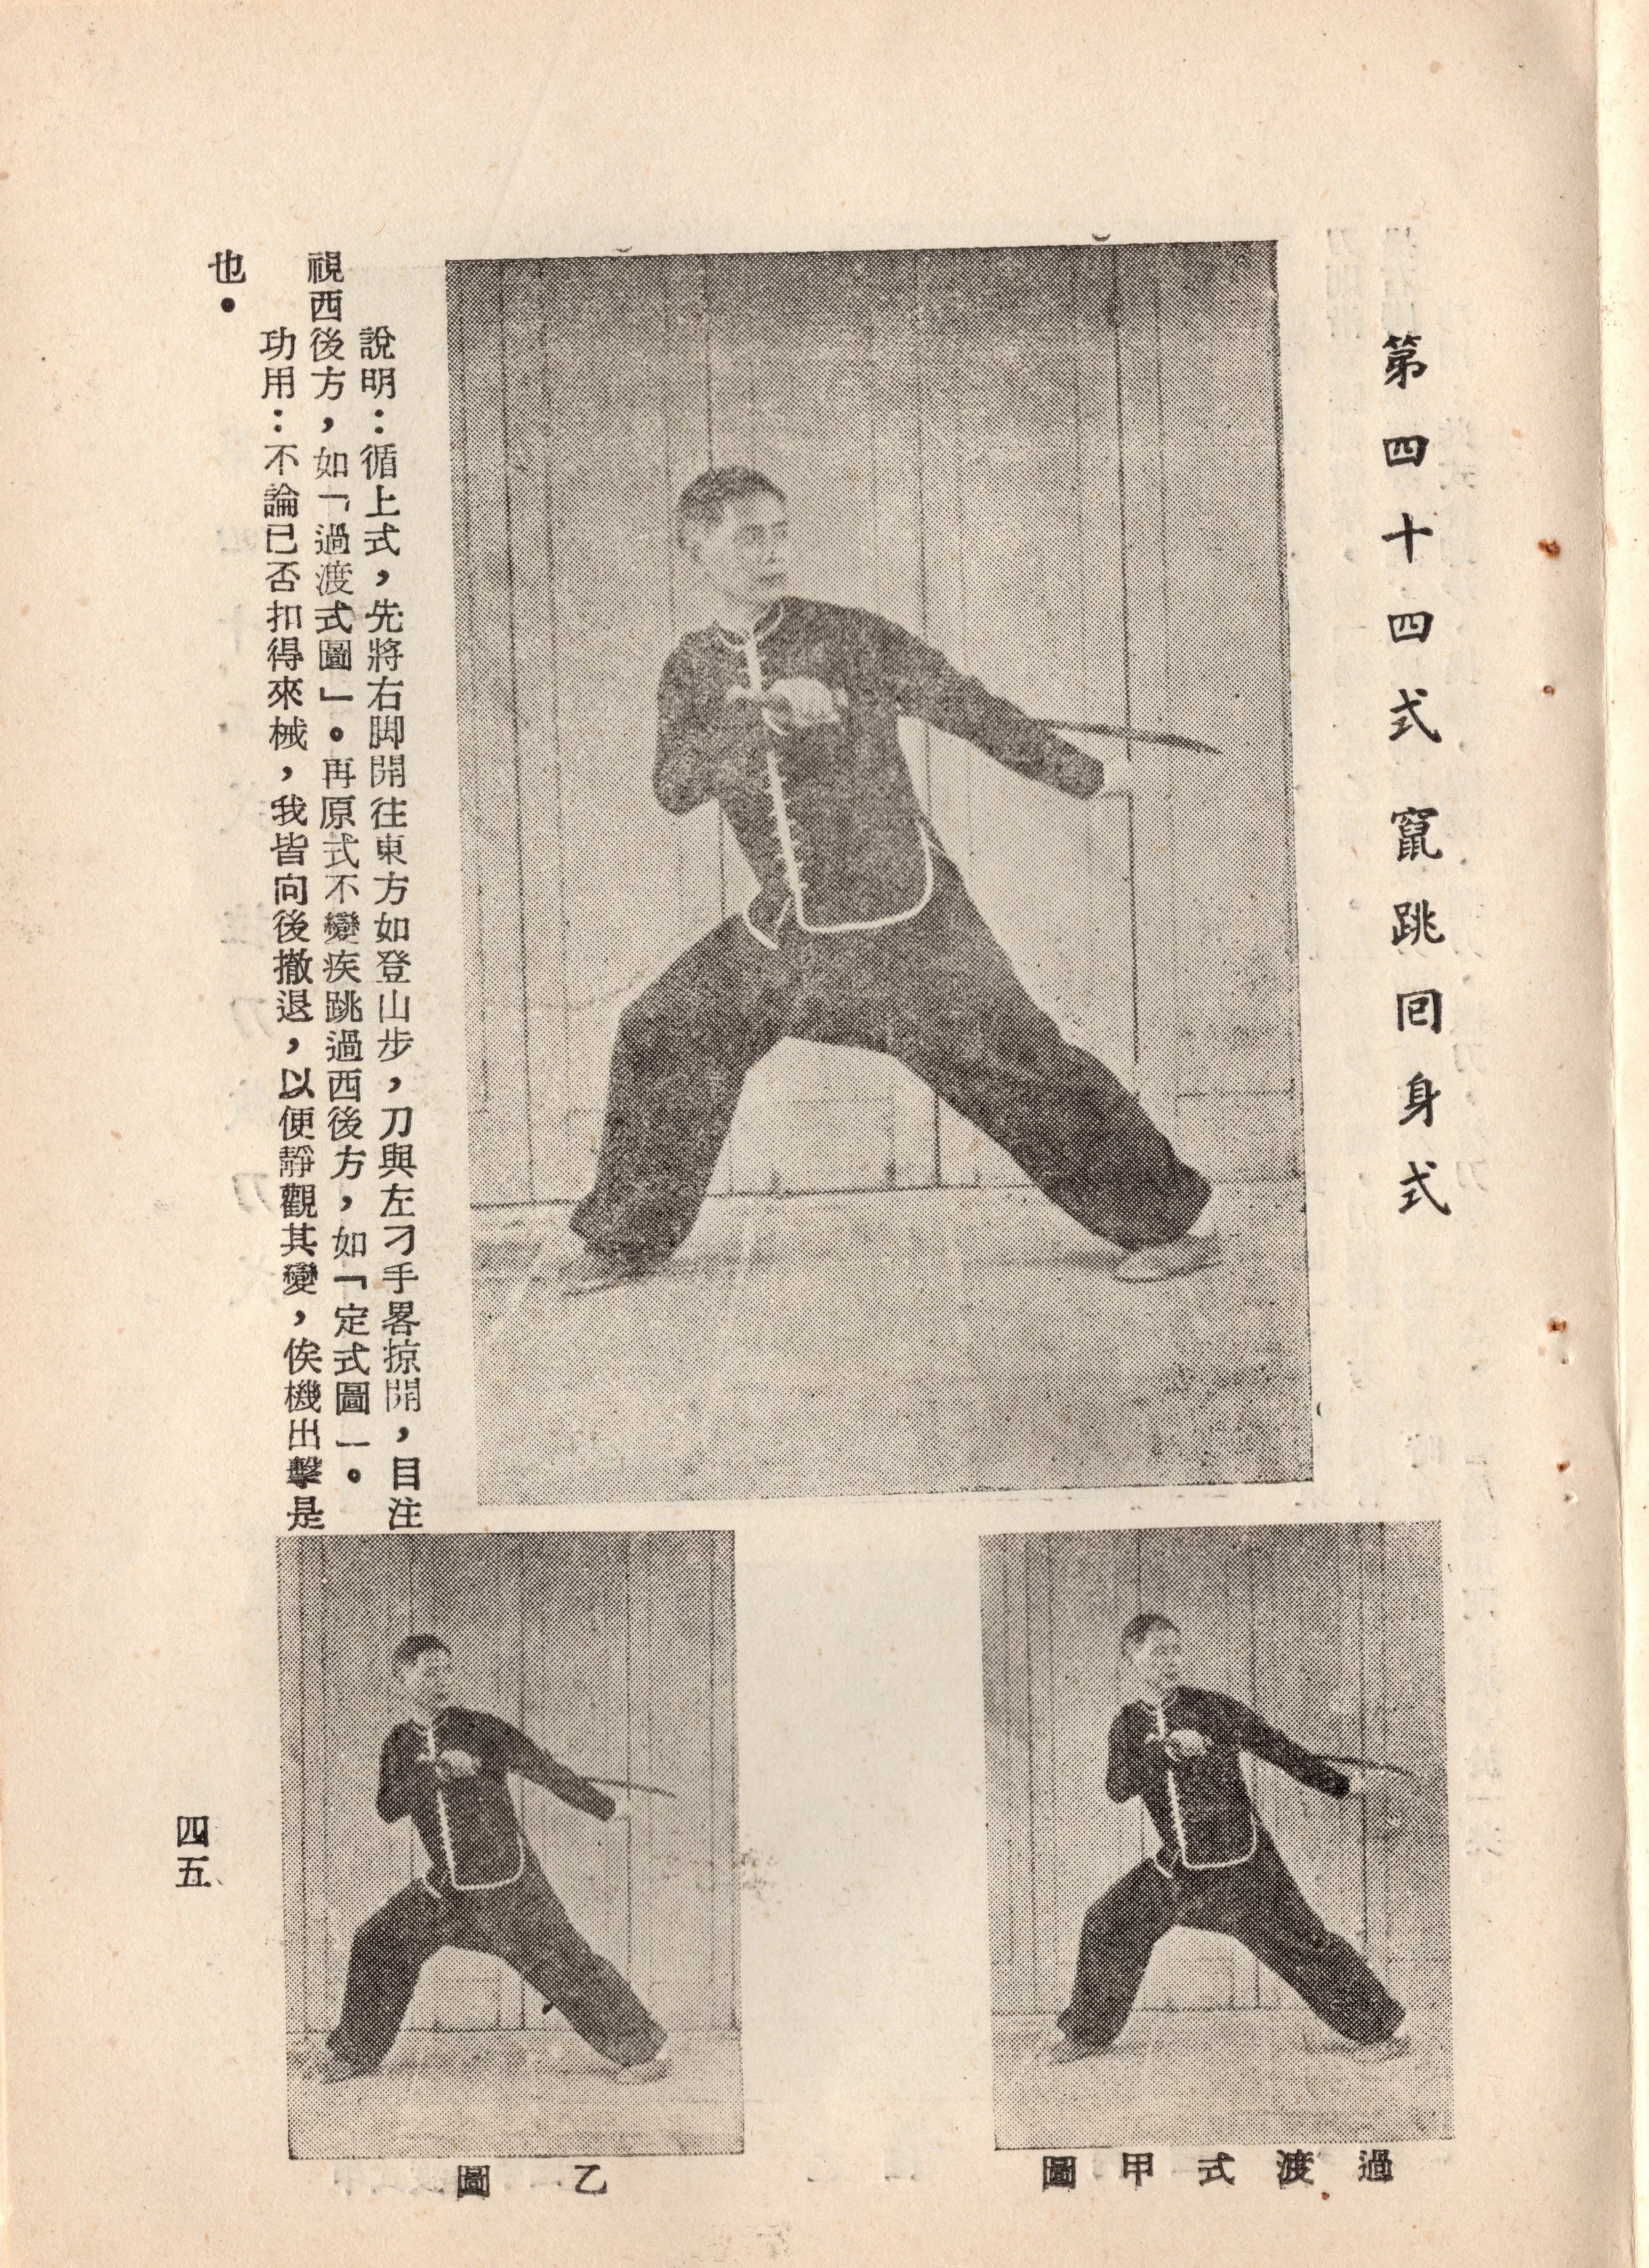 第四十四式竄跳回身式
說明：循上式，先將右脚開往東方如登山步，刀與左刁手畧掠開，目注
視西後方，如「過渡式圖」。再原式不變疾跳過西後方，如「定式圖」。
功用：不論已否扣得來械，我皆向後撤退，以便靜觀其變，俟機出擊是
也。
過渡式甲圖
乙圖
四五